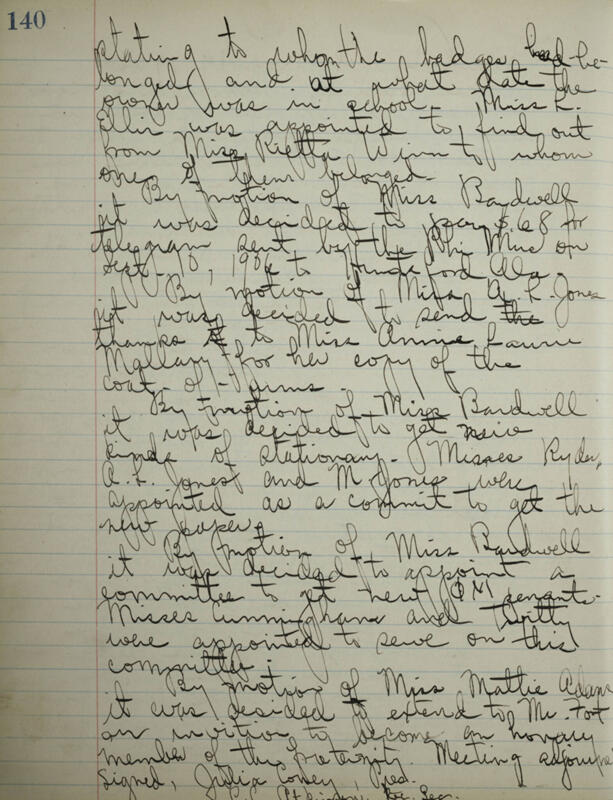 140
stating to whom the badges had be-
longed and at what date the
owner was in school. Miss K.
Ellis was appointed to find out
from Miss Rietta Winn to whom
one of them belonged.
By motion of Miss Bardwell
it was decided to pay $.68 for
telegram sent by the Phi Mus on
Sept. 1906 to Ala.
By motion of Miss A. L. Jones
it was decided to send the
thanks to Miss Annie Laurie
Mallary for her copy of the
coat-of-arms.
By motion of Miss Bardwell
it was decided to get new
kinds of stationary. Misses Ryder,
A. L. Jones and M Jones were
appointed as a commit to get the
new paper.
By motion of Miss Bardwell
it was decided to appoint a
committee to get new ΦM penants.
Misses Cunningham and
were appointed to serve on this
committee.
By motion of Miss Mattie Adams
it was decided to extend to Mr. Fort
an invition to become an honary
member of the fraternity. Meeting adjourne
Signed, Julia Pres.
Rec. Sec.